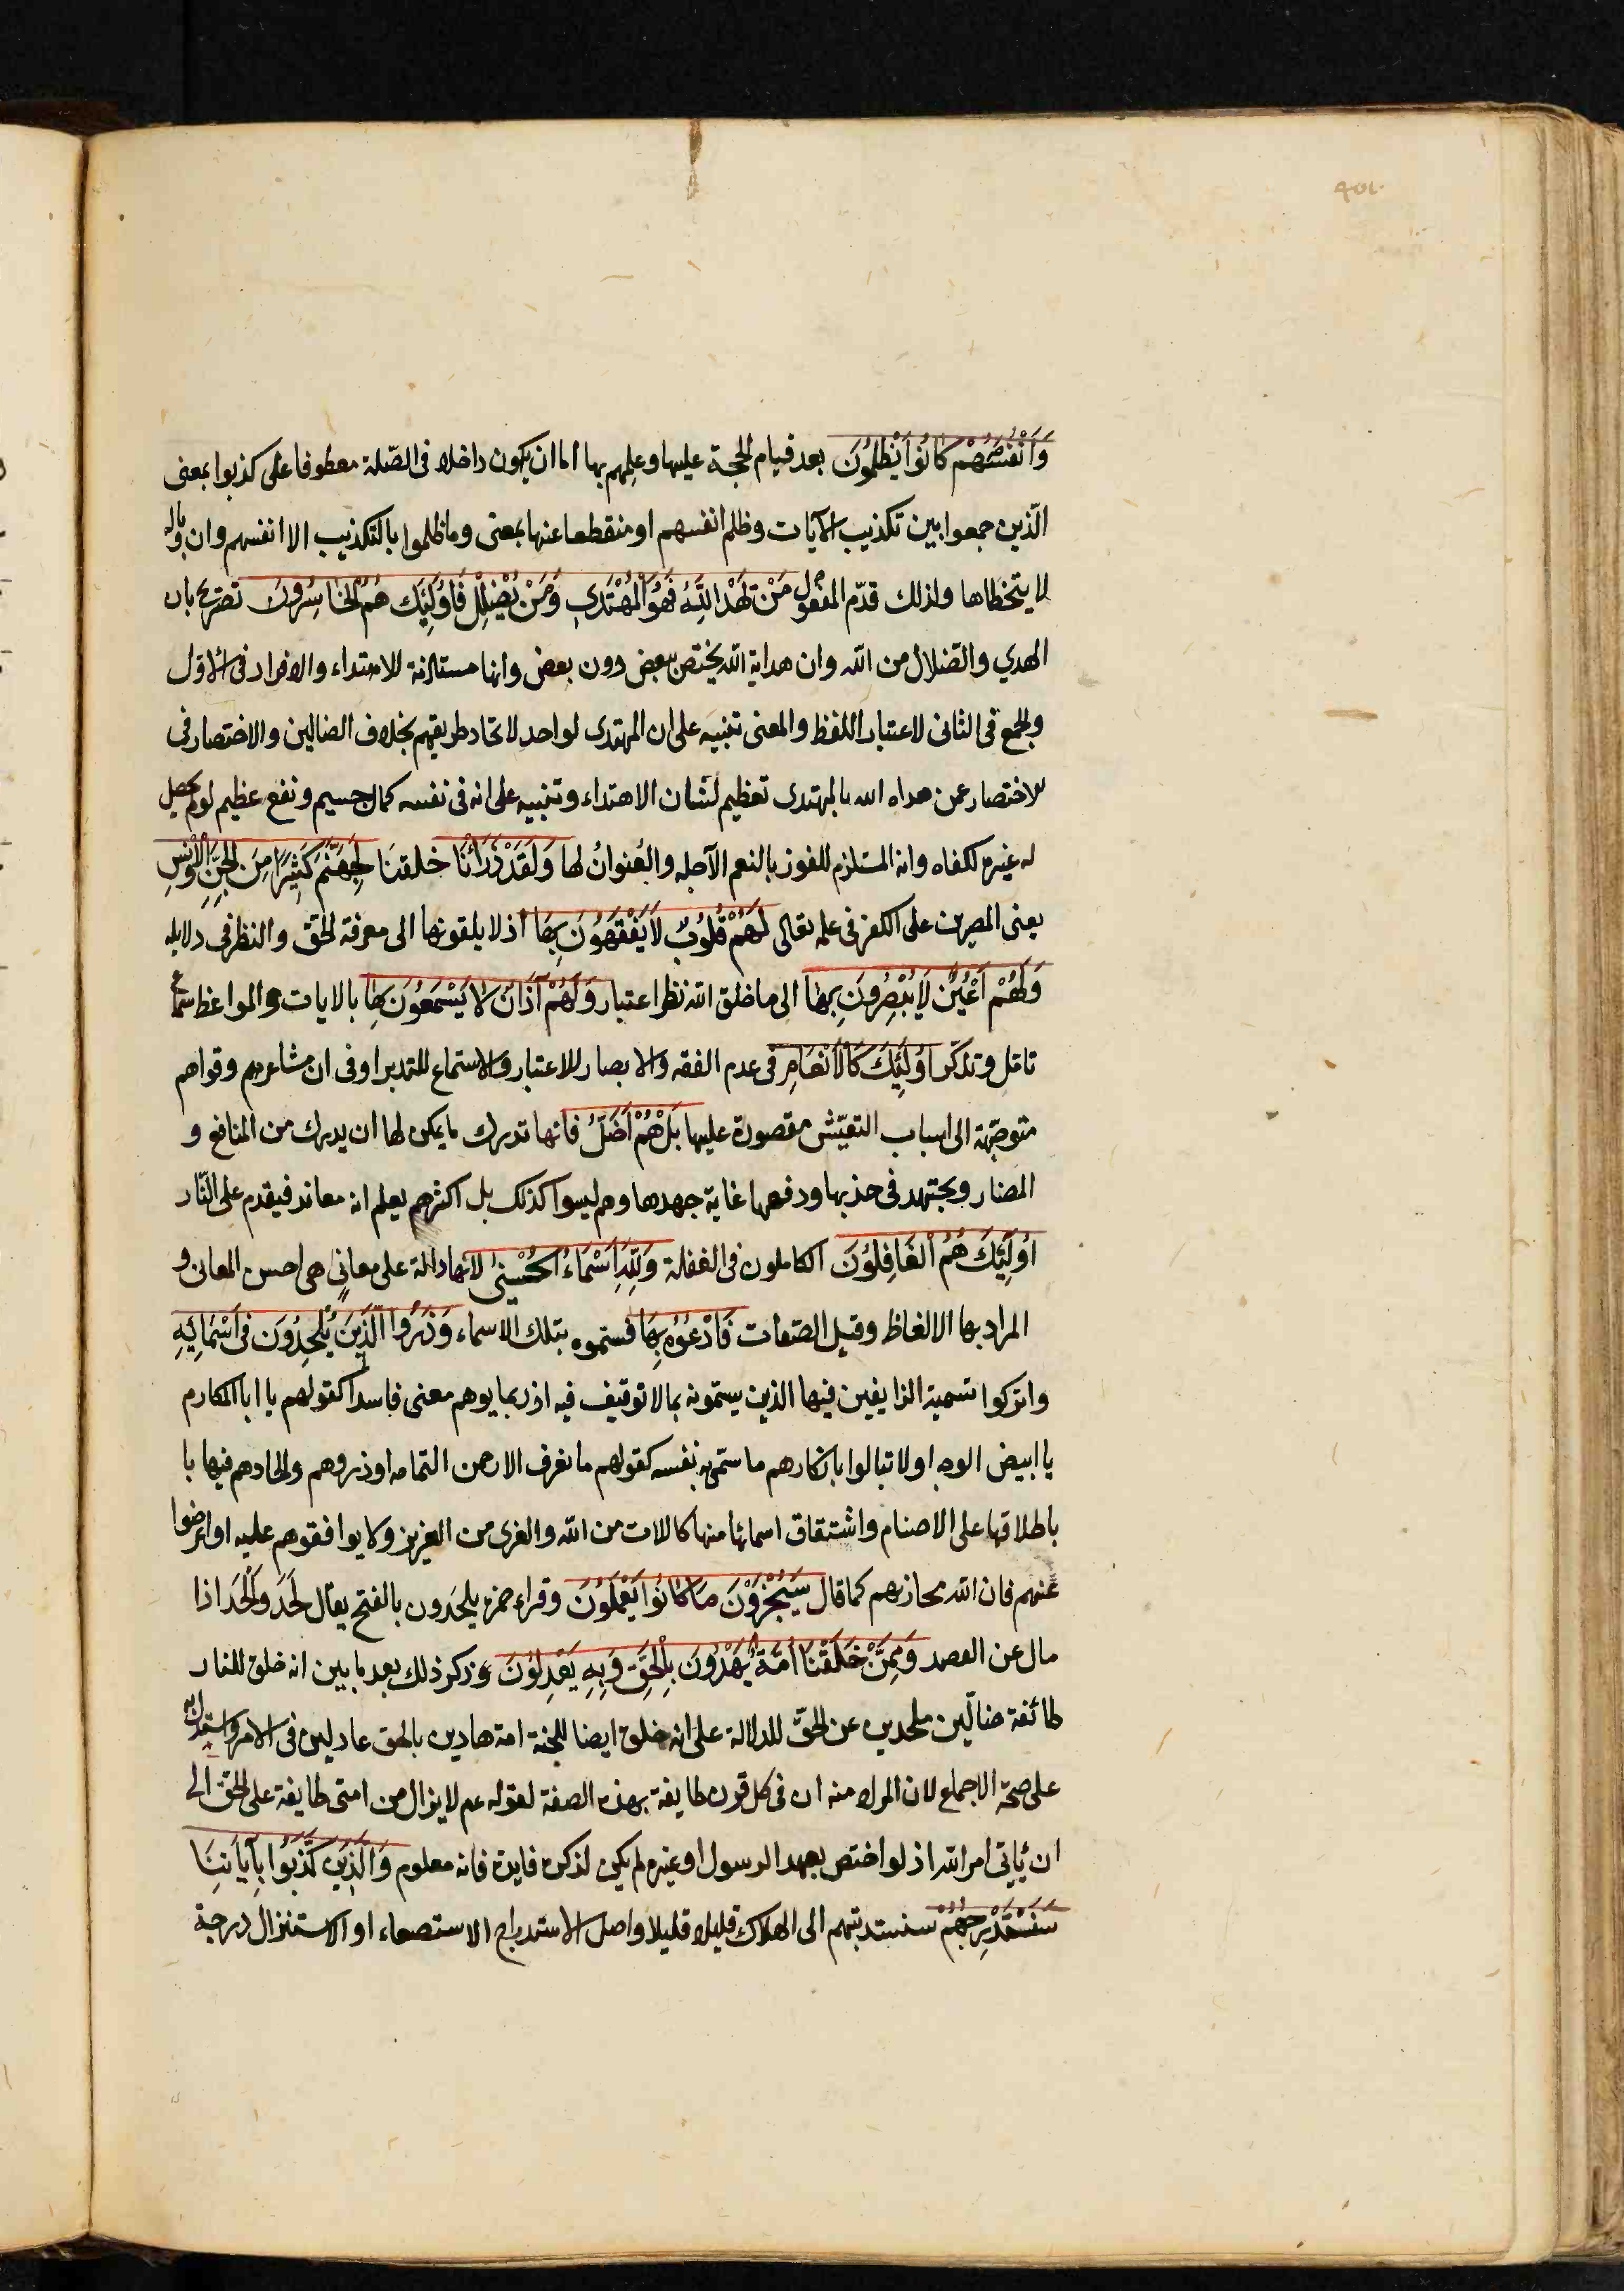 وَاَنْفُسَهُمْ كَانُوا يَظْلِمُونَ بعد قيام الحجة عليها وعلمهم بها اما ان يكون داخلا فى الصّلة معطوفا على كذبوا بمعنى
الّذين جمعوا بين تكذيب الآيات وظلم انفسهم او منقطعا عنها بمعنى وما ظلموا بالتكذيب الا انفسهم وان وباله
لا يتخطاها ولذلك قدّم المفعول مَنْ يَهْدِ اللّهُ فَهُوَ الْمُهْتَدِي وَمَنْ يُضْلِلْ فَاُولَئِكَ هُمُ الْخَاسِرُونَ تصريح بان
الهدي والضلال من اللّه وان هداية اللّه يختص ببعض دون بعض وانها مستلزمة للاهتداء والافراد فى الاول
والجمع فى الثانى لاعتبار اللفظ والمعنى تنبيه على ان المهتدى لواحد لاتحاد طريقهم بخلاف الضالين والاختصار فى
للاختصار عن هداه الله بالمهتدى تعظيم لشان الاهتداء وتنبيه على انه فى نفسه كمال جسيم ونفع عظيم لو لم يحصل
له غيره لكفاه وانه المستلزم للفوز بالنعم الآجله والعُنوانُ لها وَلَقَدْ ذَرَأْنَا خلقنا لِجَهَنَّمَ كَثِيرًا مِنَ الْجِنِّ وَالْاِنْسِ
يعنى المصرين على الكفر فى علمه تعالى لَهُمْ قُلُوبٌ لَا يَفْقَهُونَ بِهَا اذ لا يلقونها الى معرفة الحق والنظر فى دلايله
وَلَهُمْ اَعْيُنٌ لَا يُبْصِرُونَ بِهَا الى ما خلق اللّه نظر اعتبار وَلَهُمْ آذَانٌ لَا يَسْمَعُونَ بِهَا بالايات والمواعظ سماع
تامّل وتذكّر اُولَئِكَ كَالْاَنْعَامِ فى عدم الفقه والابصار للاعتبار والاستماع للتدبر او فى ان مشاعرهم وقواهم
متوجّهة الى اسباب التعيّش مقصورة عليها بَلْ هُمْ اَضَلُّ فانها تدرك ما يمكن لها ان يدرك من المنافع و
المضار ويجتهد فى جذبها ودفعها غاية جهدها وهم ليسوا كذلك بل اكثرهم يعلم انه معاند فيقدم على النّار
اُولَئِكَ هُمُ الْغَافِلُونَ الكاملون فى الغفلة وَلِلّهِ اَسْمَاءُ الْحُسْنَى لانها دالة على معانٍ هى احسن المعانى و
المراد بها الالفاظ وقيل الصفات فَادْعُوهُ بِهَا فسمّوه بتلك الاسماء وَذَرُوا الَّذِينَ يُلْحِدُونَ فى اَسْمَائِهِ
واتركوا تسمية الزايغين فيها الذين يسمّونه بما لا توقيف فيه اذ ربما يوهم معنى فاسدا كقولهم يا ابا المكارم
يا ابيض الوجه او لا تبالوا بانكارهم ما سمّى به نفسه كقولهم ما نعرف الا رحمن اليمامه او ذروهم والحادهم فيها با
باطلاقها على الاصنام واشتقاق اسمائها منها كاللات من اللّه والعزى من العزيز ولا يوافقوهم عليه او اعرضوا
عنهم فان اللّه مجازيهم كما قال سَيُجْزَوْنَ مَا كَانُوا يَعْمَلُونَ وقراء حمزه يلحَدون بالفتح يقال لَحَدَ وَاَلْحَدَ اذا
مال عن القصد وَمِمَّنْ خَلَقْنَا اُمَّةٌ يَهْدُونَ بِالْحَقِّ وَبِهِ يَعْدِلُونَ وذكر ذلك بعد ما بين انه خلق للنار
طائفة ضالّين ملحدين عن الحقّ للدلالة على انه خلق ايضا للجنة امة هادين بالحق عادلين فى الامر واستدل به
على صحّة الاجماع لان المراد منه ان فى كل قرن طايفة بهذه الصفة لقوله عم لا يزال من امتى طايفة على الحقّ الى
ان يأتى امر اللّه اذ لو اختص بعهد الرسول او غيره لم يكن لذكره فايدة فانه معلوم وَالَّذِينَ كَذَّبُوا بِآيَاتِنَا
سَنَسْتَدْرِجُهُمْ سنستدنيهم الى الهلاك قليلا قليلا واصل الاستدراج الاستصعاء او الاستنزال درجة